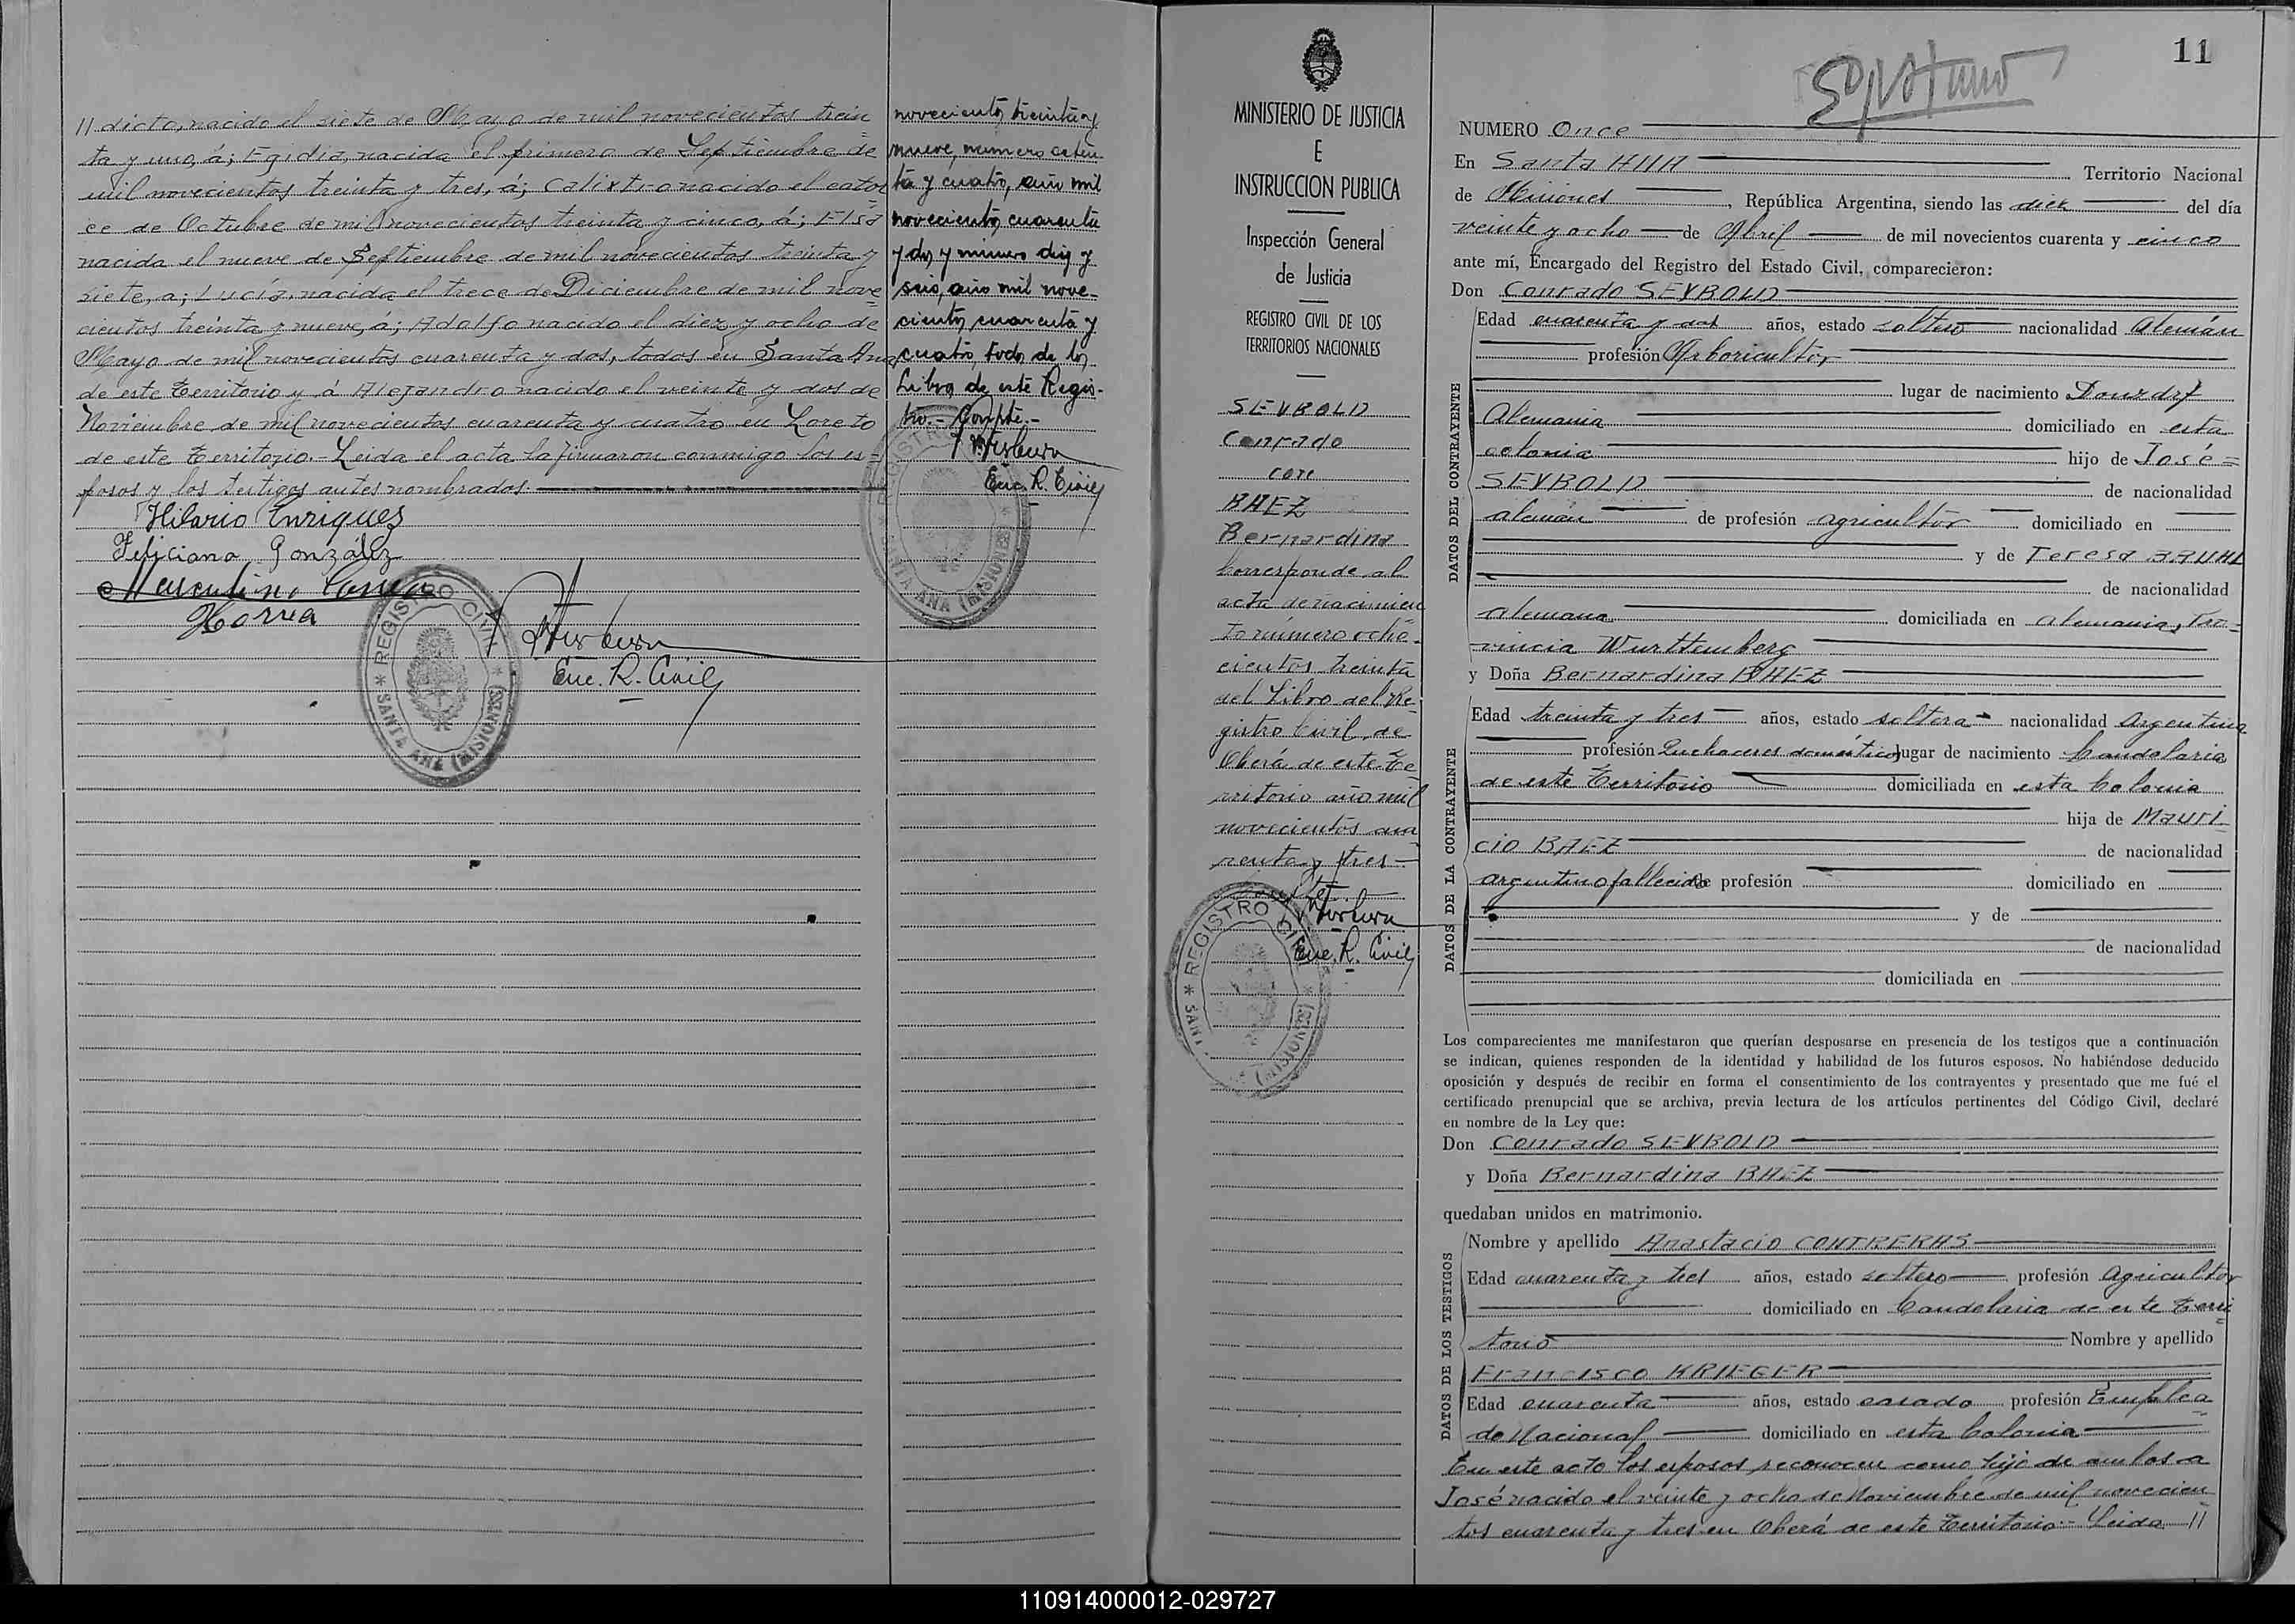 // dicto, nacido el siete de Mayo de mil novecientos trein
ta y uno, á; Egidia, nacida el primero de Septiembre de
mil novecientos treinta y tres, á; Calixtro nacido el cator
ce de Octubre de mil novecientos treinta y cinco, á; Elsa
nacida el nueve de Septiembre de mil novecientos treinta y
siete, a; Lucía, nacida el trece de Diciembre de mil nove
cientos treinta y nueve, á; Adolfo nacido el diez y ocho de
Mayo de mil novecientos cuarenta y dos, todos en Santa Ana
de este Territorio y á Alejandro nacido el veinte y dos de
Noviembre de mil novecientos cuarenta y cuatro en Loreto
de este Territorio.- Leida el acta la firmaron conmigo los es=
posos y los testigos antes nombrados.
Hilario Enriquez
Feliciana González
Correa
Enc. R. Civil
REGISTRO CIVIL
SANTA ANA (MISIONES)
novecientos treinta y
nueve, numero
ta y cuatro, año mil
novecientos cuarenta
y dos y número diez y
seis, año mil nove-
cientos cuarenta y
cuatro, todos de los
Libros de este Regis-
tro.- Conpte.-
Enc. R. Civil
REGISTRO
SANTA ANA (MISIONES)
MINISTERIO DE JUSTICIA
E
INSTRUCCION PUBLICA
Inspección General
de Justicia
REGISTRO CIVIL DE LOS
TERRITORIOS NACIONALES
SEYBOLD
Conrado
con
BAEZ
Bernardina
Corresponde al
acta de nacimien
to número ocho-
cientos treinta
del Libro del Re-
gistro Civil de
Oberá de este Te-
rritorio año mil
novecientos cua
renta y tres-
Enc. R. Civil
REGISTRO CIVIL
SANTA (MISIONES)
11
NUMERO Once
En Santa ANA Territorio Nacional
de Misiones, República Argentina, siendo las diez del día
veinte y ocho de Abril de mil novecientos cuarenta y cinco
ante mí, Encargado del Registro del Estado Civil, comparecieron:
Don Conrado SEYBOLD
DATOS DEL CONTRAYENTE
Edad cuarenta y dos años, estado soltero nacionalidad Alemán
profesión Arboricultor
lugar de nacimiento Donzdrf
Alemania domiciliado en esta
colonia hijo de José=
SEYBOLD de nacionalidad
alemán de profesión agricultor domiciliado en
y de Teresa
de nacionalidad
alemana domiciliada en Alemania, Pro=
vincia Wurttemberg
y Doña Bernardina BAEZ
DATOS DE LA CONTRAYENTE
Edad treinta y tres años, estado soltera nacionalidad Argentina
profesión Quehaceres domésticos lugar de nacimiento Candelaria
de este Territorio domiciliada en esta Colonia
hija de Mauri
cio BAEZ de nacionalidad
argentino fallecido de profesión domiciliado en
y de
de nacionalidad
domiciliada en
Los comparecientes me manifestaron que querían desposarse en presencia de los testigos que a continuación
se indican, quienes responden de la identidad y habilidad de los futuros esposos. No habiéndose deducido
oposición y después de recibir en forma el consentimiento de los contrayentes y presentado que me fué el
certificado prenupcial que se archiva, previa lectura de los artículos pertinentes del Código Civil, declaré
en nombre de la Ley que:
Don Conrado SEYBOLD
y Doña Bernardina BAEZ
quedaban unidos en matrimonio.
DATOS DE LOS TESTIGOS
Nombre y apellido Anastacio CONTRERAS
Edad cuarenta y tres años, estado soltero profesión Agricultor
domiciliado en Candelaria de este Terri=
torio Nombre y apellido
Francisco KRIEGER
Edad cuarenta años, estado casado profesión Emplea
do Nacional domiciliado en esta Colonia
En este acto los esposos reconocen como hijo de ambos a
José nacido el veinte y ocho de Noviembre de mil novecien
tos cuarenta y tres en Oberá de este Territorio.- Leida //
110914000012-029727